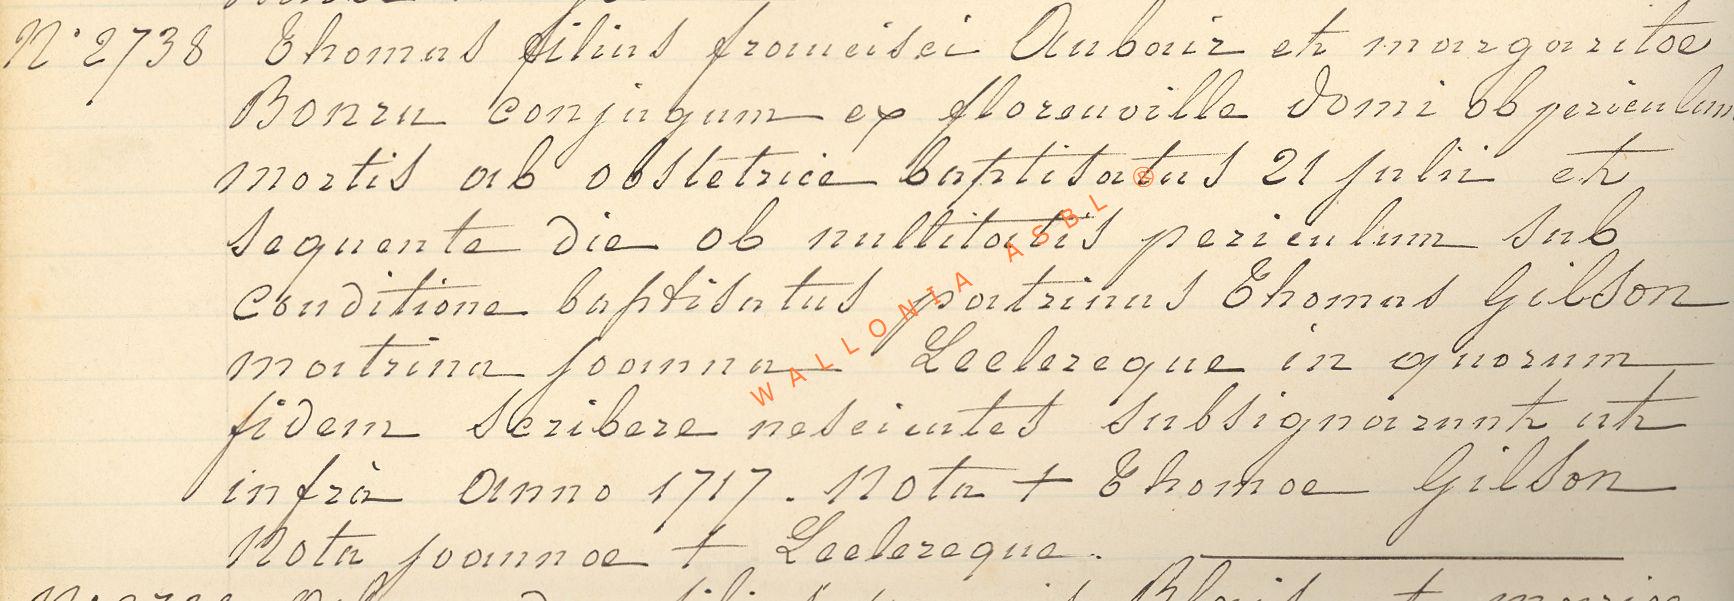 N° 2738 Thomas filius francisci Aubair et margaritæ
Bonru conjugum ex florenville domi ob periculum
mortis ab obstetrice baptisatus 21 julii et
sequente die ob nullitatis periculum sub
conditione baptisatus patrinus Thomas Gilson
matrina joanna Leclercque in quorum
fidem scribere nescientes subsignarunt ut
infrà anno 1717. Nota + Thomæ Gilson
Nota joannæ + Leclercque.
WALLONIA ASBL ®